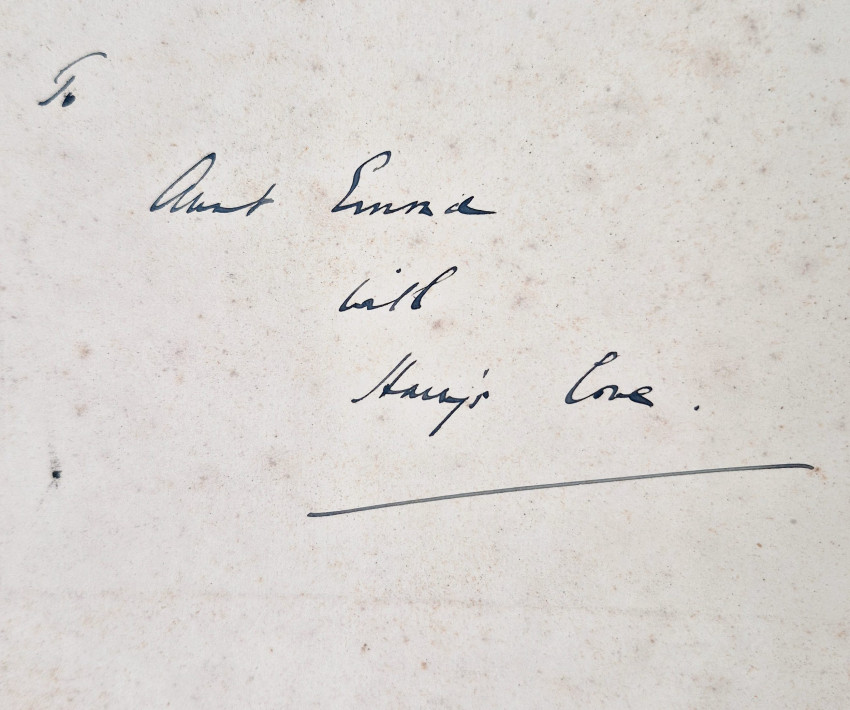 To
Aunt Emma
with
Harry's Love.